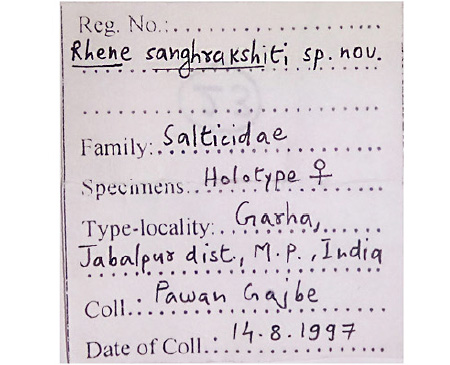 Reg. No.:
Rhene sanghrakshiti sp. nov.
Family: Salticidae
Specimens.. Holotype ♀
Type-locality: Garha,
Jabalpur dist, M.P., India
Coll.: Pawan Gajbe
Date of Coll.: 14.8.1997